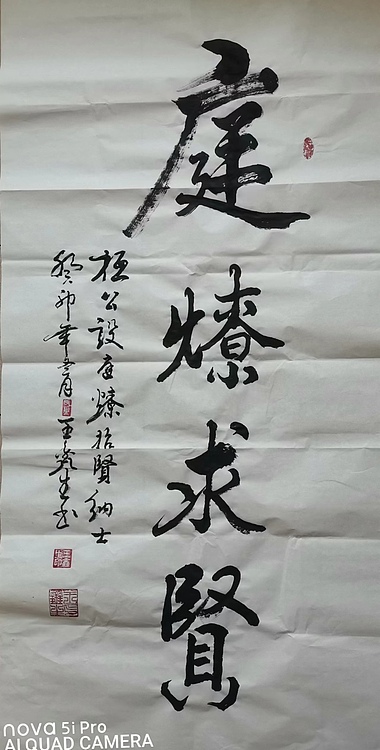 庭燎求賢
桓公設庭燎招賢納士
癸卯年 月 王 生书
nova 5i Pro
AI QUAD CAMERA